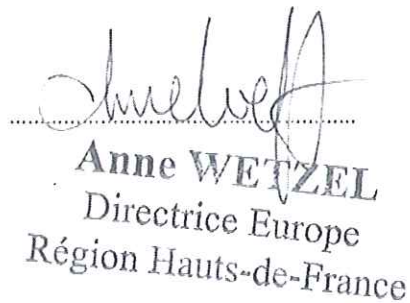 Anne WETZEL
Directrice Europe
Région Hauts-de-France